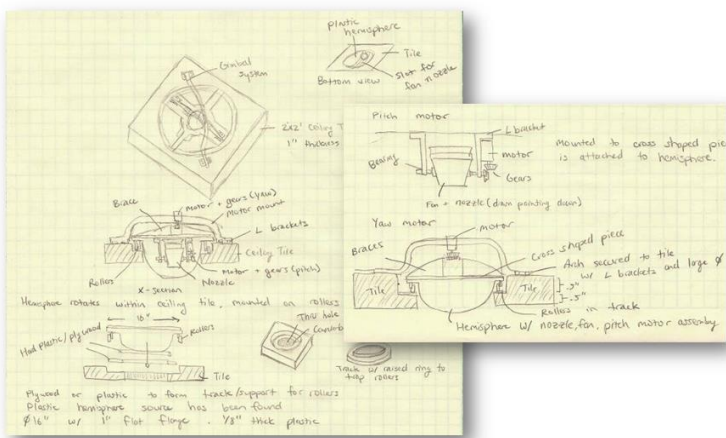 Gimbal
system
2x2' Ceiling
1" thickness
plastic
hemisphere
Tile
slot for
fan nozzle
Bottom view
Brace
motor + gears (yaw)
motor mount
L brackets
Ceiling Tile
Rollers
Nozzle
motor + gears (pitch)
X-section
Hemisphere rotates within ceiling tile, mounted on rollers
16"
Rollers
Hard plastic/plywood
Tile
Thru hole
Track w/ raised ring to
trap rollers
Plywood or plastic to form track/support for rollers
Plastic hemisphere source has been found
Ø16" w/ 1" flat flange . 1/8" thick plastic
Pitch motor
L bracket
Bearing
motor
Gears
Fan + nozzle (down pointing down)
Mounted to cross shaped
is attached to hemisphere.
Yaw motor
motor
Braces
Cross shaped piece
Arch secured to tile
w/ L brackets and large Ø
Tile
Tile
Rollers in track
Hemisphere w/ nozzle, fan, pitch motor assembly